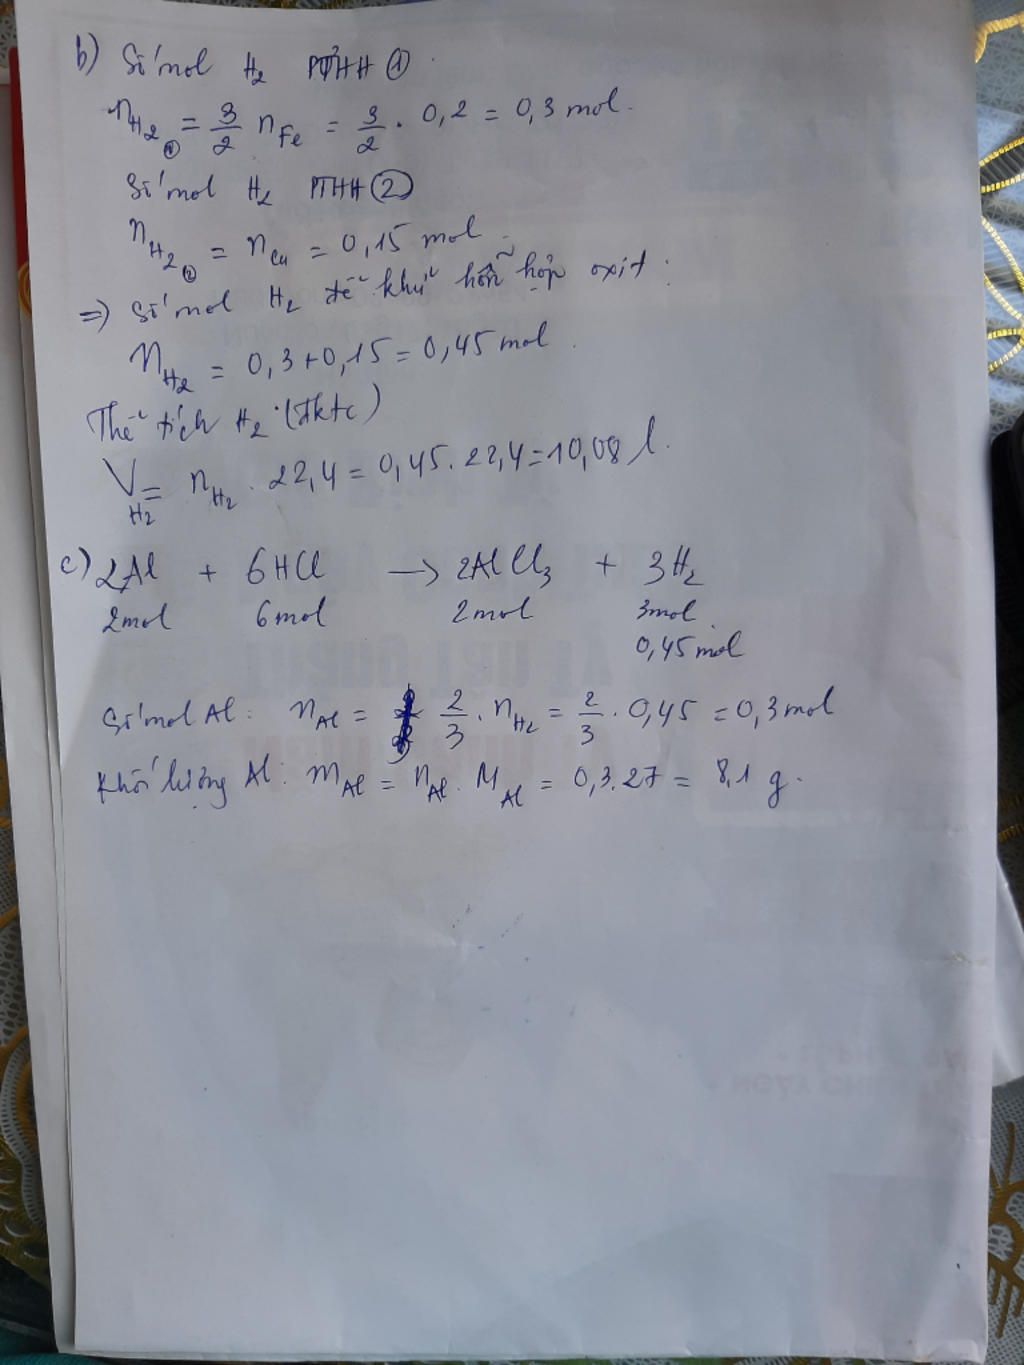 b) Số mol H2 PTHH ①
nH2① = 3/2 nFe = 3/2 . 0,2 = 0,3 mol.
Số mol H2 PTHH ②
nH2② = nCu = 0,15 mol.
=> Số mol H2 để khử hỗn hợp oxit :
nH2 = 0,3+0,15 = 0,45 mol.
Thể tích H2 (đktc)
VH2 = nH2 . 22,4 = 0,45 . 22,4 = 10,08 l.
c) 2Al + 6HCl → 2AlCl3 + 3H2
2mol 6mol 2mol 3mol
0,45 mol
Số mol Al: nAl = 2/3 . nH2 = 2/3 . 0,45 = 0,3 mol
Khối lượng Al: mAl = nAl . MAl = 0,3.27 = 8,1 g.